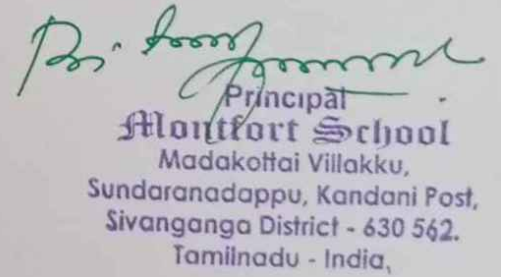 Principal
Montfort School
Madakottai Villakku,
Sundaranadappu, Kandani Post,
Sivanganga District - 630 562.
Tamilnadu - India,